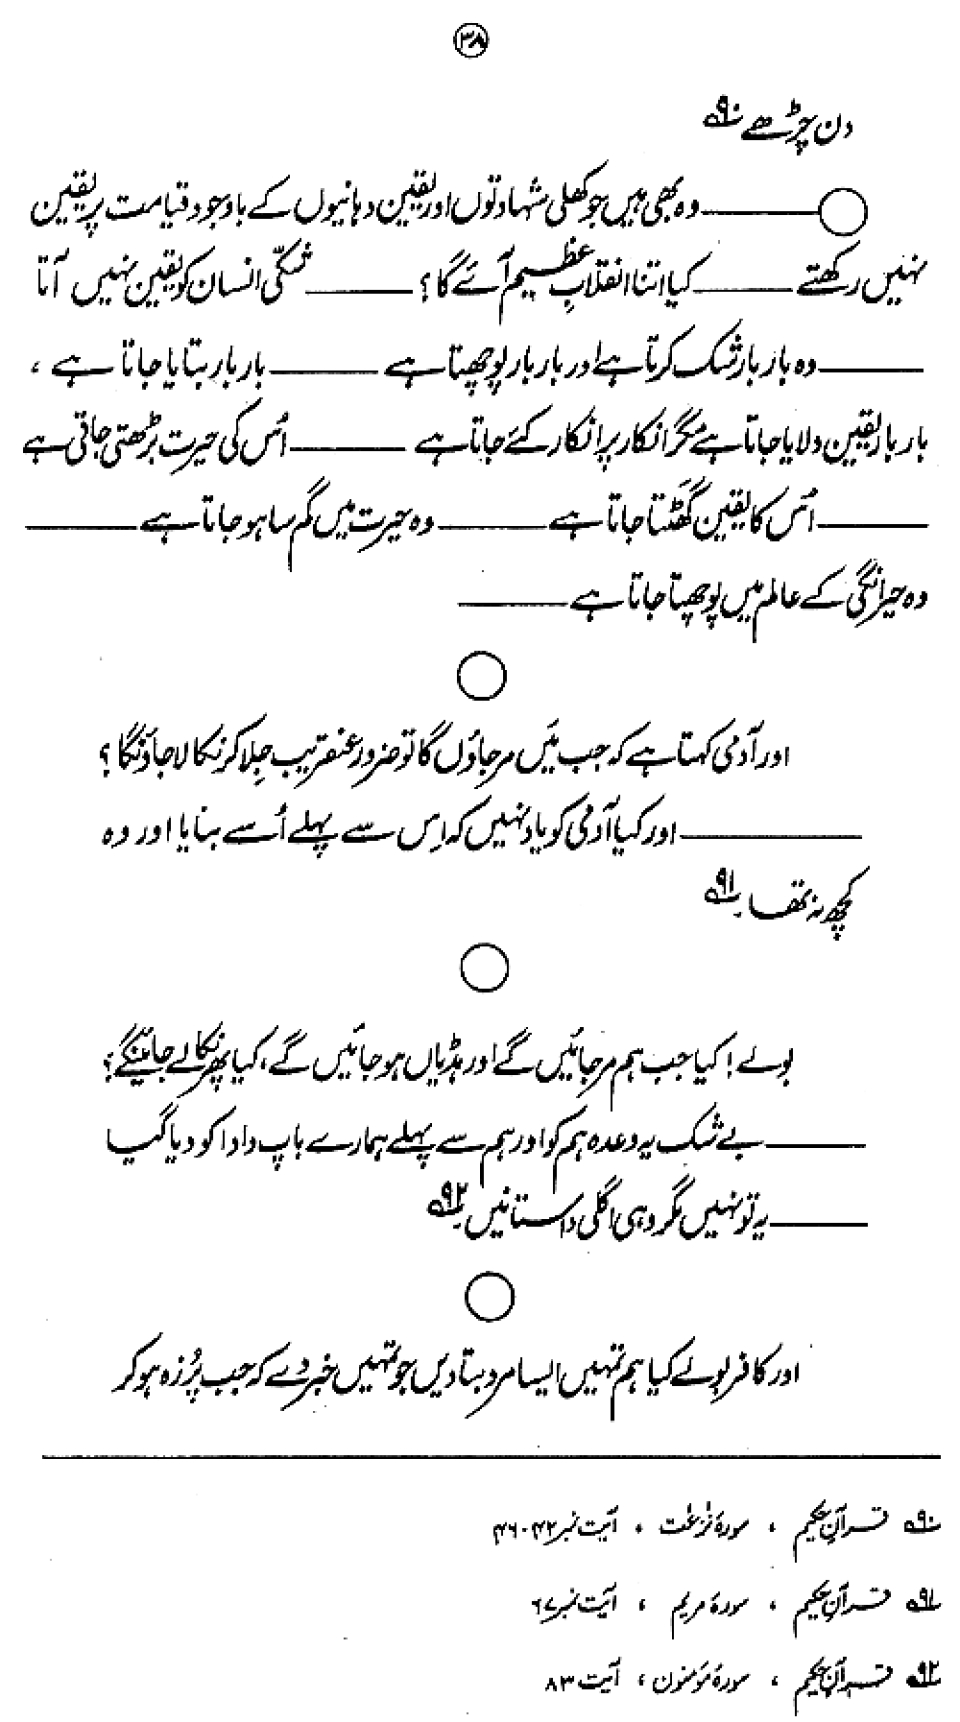 ۳۸
دن چڑھے ۹۰؎
وہ بھی ہیں جو کھلی شہادتوں اور یقین دہانیوں کے باوجود قیامت پر یقین
نہیں رکھتے ——— کیا اتنا انقلابِ عظیم آئے گا؟ ——— شکّی انسان کو یقین نہیں آتا
——— وہ بار بار شک کرتا ہے اور بار بار پوچھتا ہے ——— بار بار بتایا جاتا ہے،
بار بار یقین دلایا جاتا ہے مگر انکار پر انکار کئے جاتا ہے ——— اُس کی حیرت بڑھتی جاتی ہے
——— اُس کا یقین گھَٹتا جاتا ہے ——— وہ حیرت میں گم سا ہو جاتا ہے ———
وہ حیرانگی کے عالم میں پوچھتا جاتا ہے ———
اور آدمی کہتا ہے کہ جب مَیں مر جاؤں گا تو ضرور عنقریب جِلا کر نکالا جاؤنگا؟
——— اور کیا آدمی کو یاد نہیں کہ اِس سے پہلے اُسے بنایا اور وہ
کچھ نہ تھا ۹۱؎
بولے! کیا جب ہم مر جائیں گے اور ہڈیاں ہو جائیں گے، کیا پھر نکالے جائینگے؟
——— بے شک یہ وعدہ ہم کو اور ہم سے پہلے ہمارے باپ دادا کو دیا گیا
——— یہ تو نہیں مگر وہی اگلی داستانیں ۹۲؎
اور کافر بولے کیا ہم تمہیں ایسا مرد بتا دیں جو تمہیں خبر دے کہ جب پُرزہ ہو کر
۹۰؎ قرآن حکیم ، سورۂ نٰزعٰت ، آیت نمبر ۴۲-۴۶
۹۱؎ قرآن حکیم ، سورۂ مریم ، آیت نمبر ۶۷
۹۲؎ قرآن حکیم ، سورۂ مومنون ، آیت ۸۳